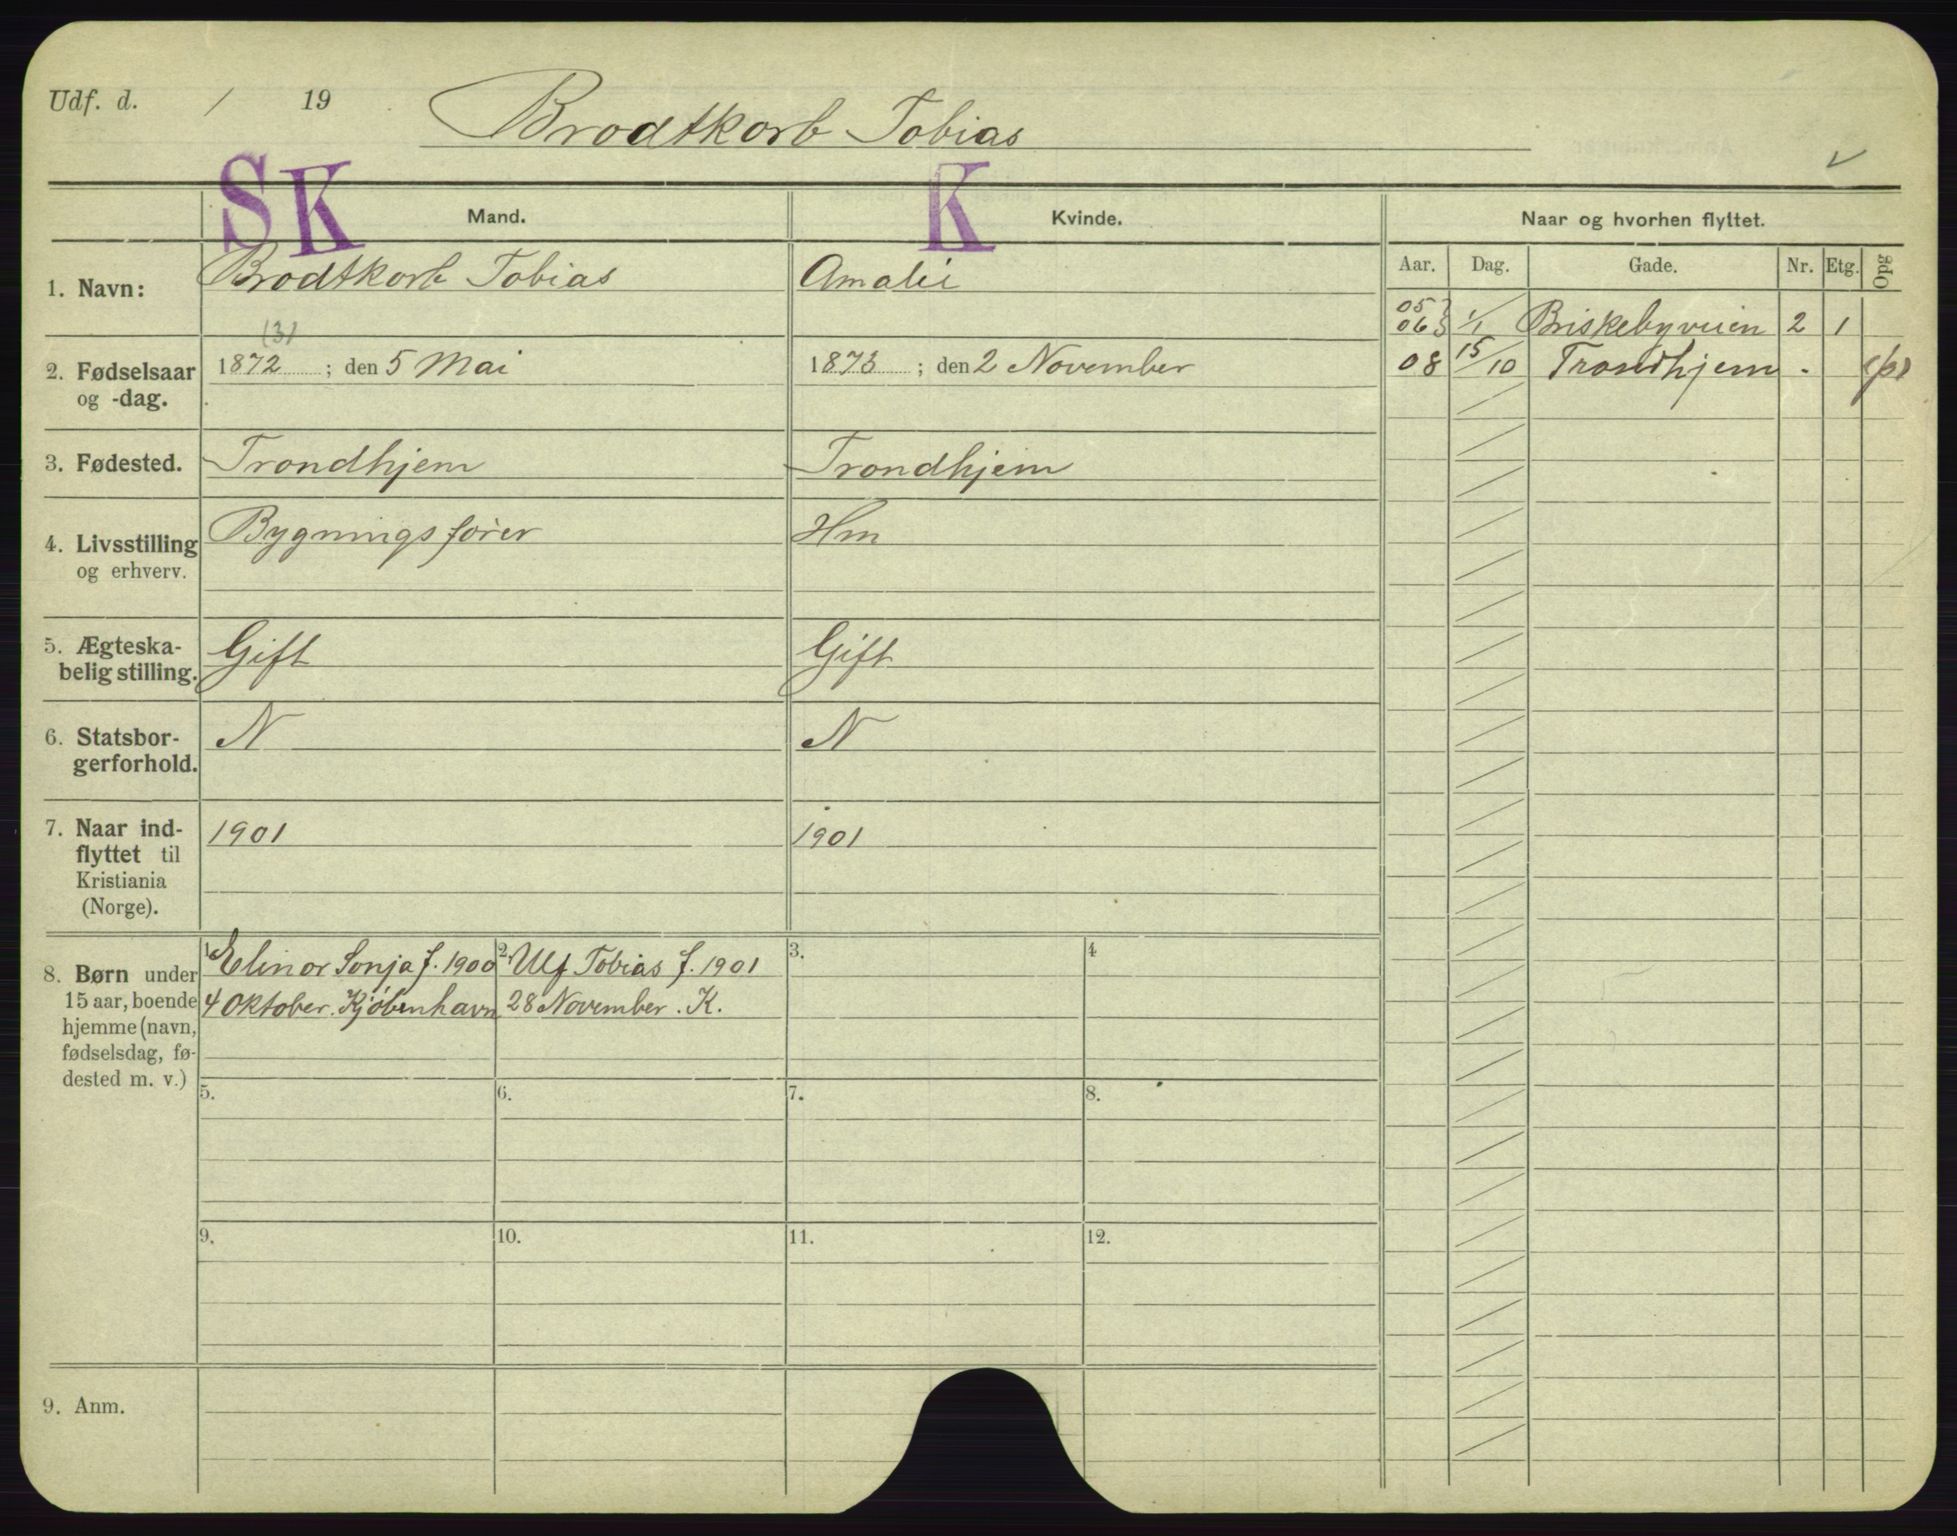 Udf. d. / 19
Brodtkorb Tobias
SK K
Mand. Kvinde. Naar og hvorhen flyttet.
Aar. Dag. Gade. Nr. Etg. Opg
1. Navn: Brodtkorb Tobias Amalie
05 }
06 } 1/1 Briskebyveien 2 1
(3)
2. Fødselsaar 1872 ; den 5 Mai 1873 ; den 2 November
og -dag.
08 15/10 Trondhjem - (p)
3. Fødested. Trondhjem Trondhjem
4. Livsstilling Bygningsfører Hm
og erhverv.
5. Ægteska- Gift Gift
belig stilling.
6. Statsbor- N N
gerforhold.
7. Naar ind- 1901 1901
flyttet til
Kristiania
(Norge).
8. Børn under
15 aar, boende
hjemme (navn,
fødselsdag, fø-
dested m. v.)
1. Elinor Sonja f. 1900
4 Oktober. Kjøbenhavn
2. Ulf Tobias f. 1901
28 November. K.
3. 4
5. 6. 7. 8.
9. 10. 11. 12.
9. Anm.